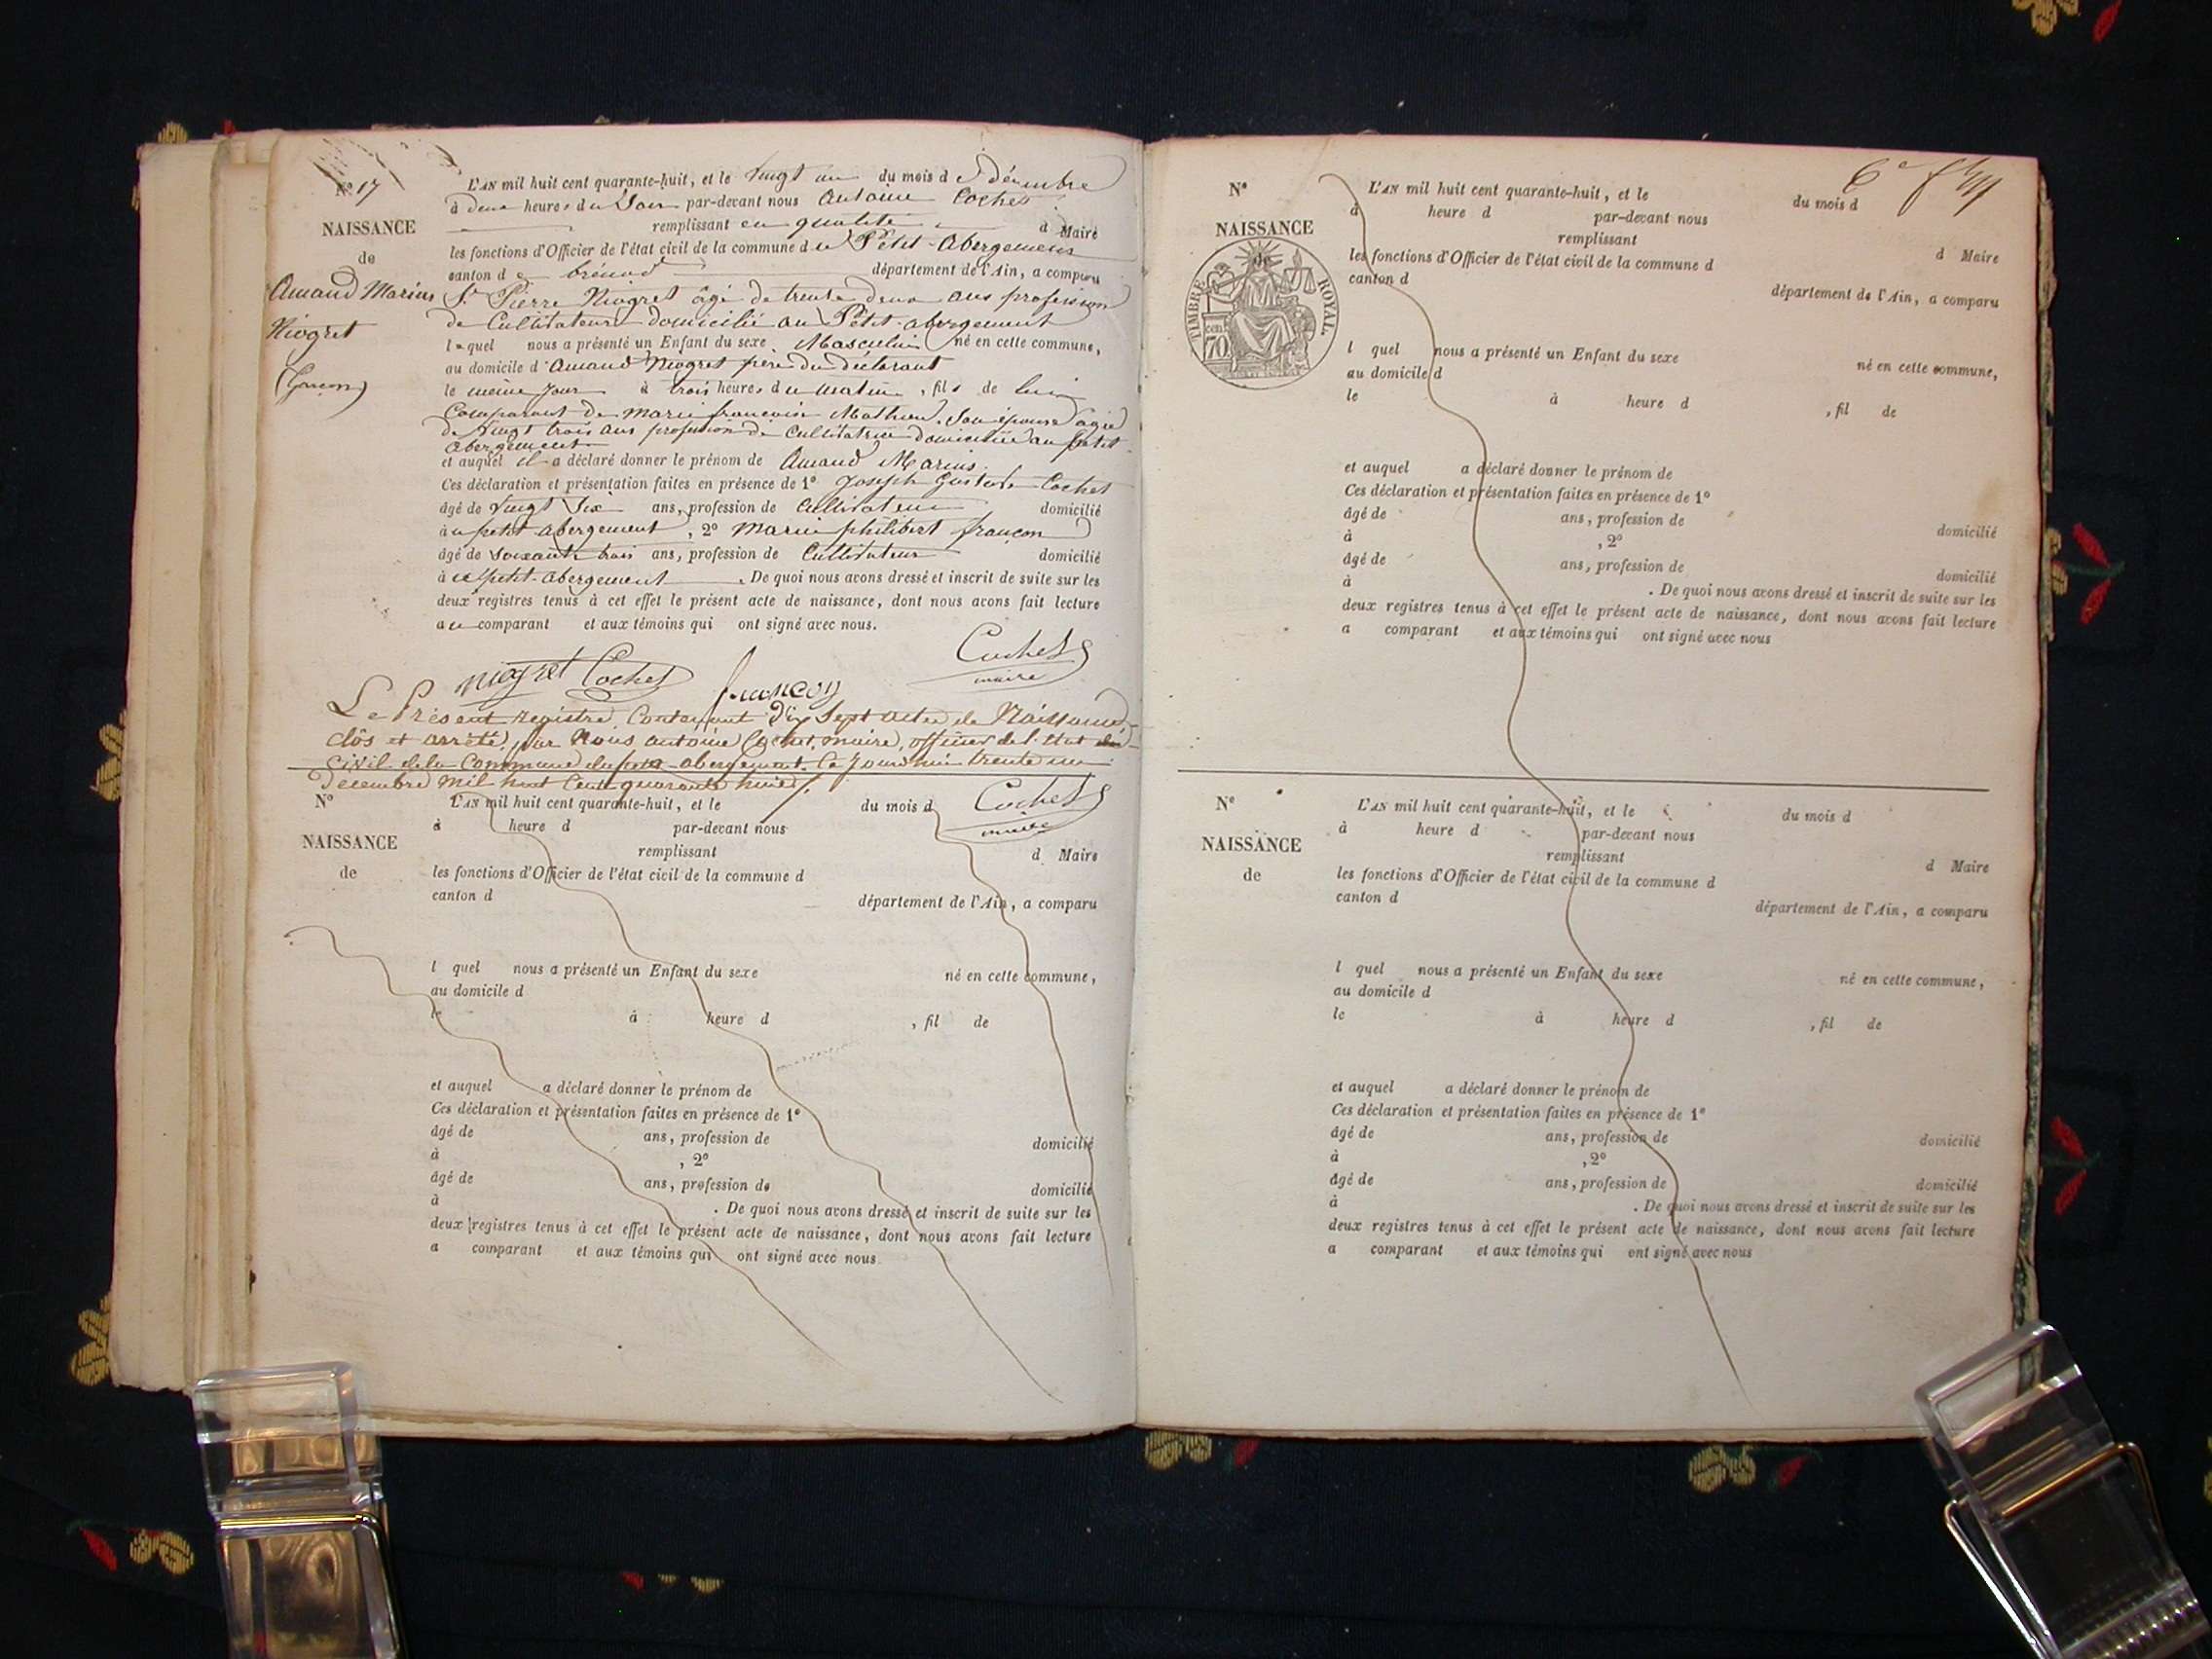 Nº 17
NAISSANCE
de
Amand Marius
Niogret
(Garçon)
L'AN mil huit cent quarante-huit, et le vingt un du mois de décembre
à deux heures du Soir par-devant nous Antoine Cochet
remplissant en qualité d Maire
les fonctions d'Officier de l'état civil de la commune du Petit-Abergement
canton de brénod département de l'Ain, a comparu
Sr Pierre Niogret âgé de trente deux ans profession
de Cultivateur domicilié au Petit-abergement
lequel nous a présenté un Enfant du sexe Masculin né en cette commune,
au domicile d'Amand Niogret père du déclarant
le même jour à trois heures du matin, fils de lui
Comparant de marie françoise Mathieu Son épouse âgée
de vingt trois ans profession de Cultivatrice domiciliée au petit
abergement
et auquel il a déclaré donner le prénom de Amand Marius.
Ces déclaration et présentation faites en présence de 1º Joseph Gustave Cochet
âgé de vingt Six ans, profession de Cultivateur domicilié
à u petit abergement, 2º Marie philibert françon
âgé de soixante trois ans, profession de Cultivateur domicilié
à u petit-abergement. De quoi nous avons dressé et inscrit de suite sur les
deux registres tenus à cet effet le présent acte de naissance, dont nous avons fait lecture
au comparant et aux témoins qui ont signé avec nous.
niogret Cochet françon Cochet
maire
Le Présent registre, Contenant Dix Sept actes de Naissance
clôs et arrêté, par Nous antoine Cochet, maire, officier de l'Etat
Civil de la Commune du petit-abergement. Ce Jourd'hui trente un
Décembre mil huit Cent quarante huit.
Cochet
maire
Nº
NAISSANCE
de
L'AN mil huit cent quarante-huit, et le du mois d
à heure d par-devant nous
remplissant d Maire
les fonctions d'Officier de l'état civil de la commune d
canton d département de l'Ain, a comparu
l quel nous a présenté un Enfant du sexe né en cette commune,
au domicile d
le à heure d , fil de
et auquel a déclaré donner le prénom de
Ces déclaration et présentation faites en présence de 1º
âgé de ans, profession de domicilié
à , 2º
âgé de ans, profession de domicilié
à . De quoi nous avons dressé et inscrit de suite sur les
deux registres tenus à cet effet le présent acte de naissance, dont nous avons fait lecture
a comparant et aux témoins qui ont signé avec nous.
Nº
NAISSANCE
de
TIMBRE ROYAL
70 cen
L'AN mil huit cent quarante-huit, et le du mois d
à heure d par-devant nous
remplissant d Maire
les fonctions d'Officier de l'état civil de la commune d
canton d département de l'Ain, a comparu
l quel nous a présenté un Enfant du sexe né en cette commune,
au domicile d
le à heure d , fil de
et auquel a déclaré donner le prénom de
Ces déclaration et présentation faites en présence de 1º
âgé de ans, profession de domicilié
à , 2º
âgé de ans, profession de domicilié
à . De quoi nous avons dressé et inscrit de suite sur les
deux registres tenus à cet effet le présent acte de naissance, dont nous avons fait lecture
a comparant et aux témoins qui ont signé avec nous
Nº
NAISSANCE
de
L'AN mil huit cent quarante-huit, et le du mois d
à heure d par-devant nous
remplissant d Maire
les fonctions d'Officier de l'état civil de la commune d
canton d département de l'Ain, a comparu
l quel nous a présenté un Enfant du sexe né en cette commune,
au domicile d
le à heure d , fil de
et auquel a déclaré donner le prénom de
Ces déclaration et présentation faites en présence de 1º
âgé de ans, profession de domicilié
à , 2º
âgé de ans, profession de domicilié
à . De quoi nous avons dressé et inscrit de suite sur les
deux registres tenus à cet effet le présent acte de naissance, dont nous avons fait lecture
a comparant et aux témoins qui ont signé avec nous